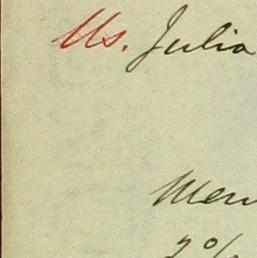 Us. Julia
Mem
2%